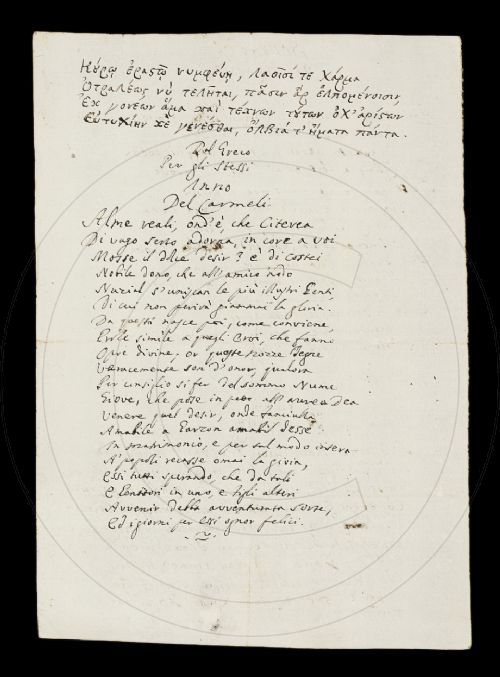 Κύρῳ ἐραςῷ νυμφεύῃ, λαοῖσί τε χάρμα
Ὀτραλέως νῦ τελῆται, πᾶσιν ἄρ ἐλπομένοισιν,
Ἐκ γονέων ἅμα καὶ τέκνων τύτων ὄχ' ἀρίςων
Εὐτυχίην κὲ γενέσθαι, ὄλβιά τ' ἤματα πάντα.
Dal Greco
Per gli Stessi
Inno
Del Carmeli
Alme reali, ond'è, che Citerea
Di vago serto adorna, in core a voi
Mosse il dolce desir? è di costei
Nobile dono, che all'amico nodo
Nuzial s'uniscan le più illustri Genti,
Di cui non perirà giammai la gloria.
Da questi nasce poi, come conviene,
Erede simile a quegli Eroi, che fanno
Opre divine, or queste nozze Regie
Veracemente son d'onor, qualora
Per consiglio si fer del sommo Nume
Giove, che pose in petto all'aurea Dea
Venere quel desir, onde fanciulla
Amabile a Garzon amabil desse
In matrimonio, e per sul modo
A' popoli recasse omai la gioia,
Essi tutti sperando, che da tali
E Genitori in uno, e figli altieri
Avvenir debba avventurata sorte,
Ed i giorni per Essi ognor felici.